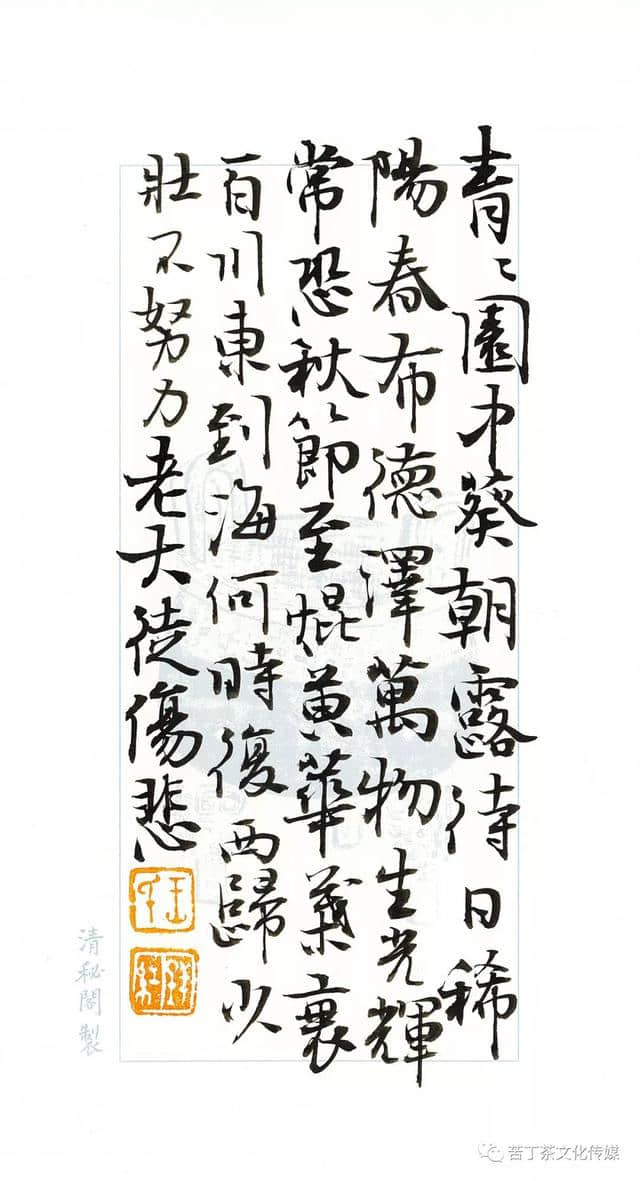 青〻園中葵朝露待日稀
陽春布德澤萬物生光輝
常恐秋節至焜黄華葉衰
百川東到海何時復西歸少
壯不努力老大徒傷悲
清秘閣製
苦丁茶文化传媒